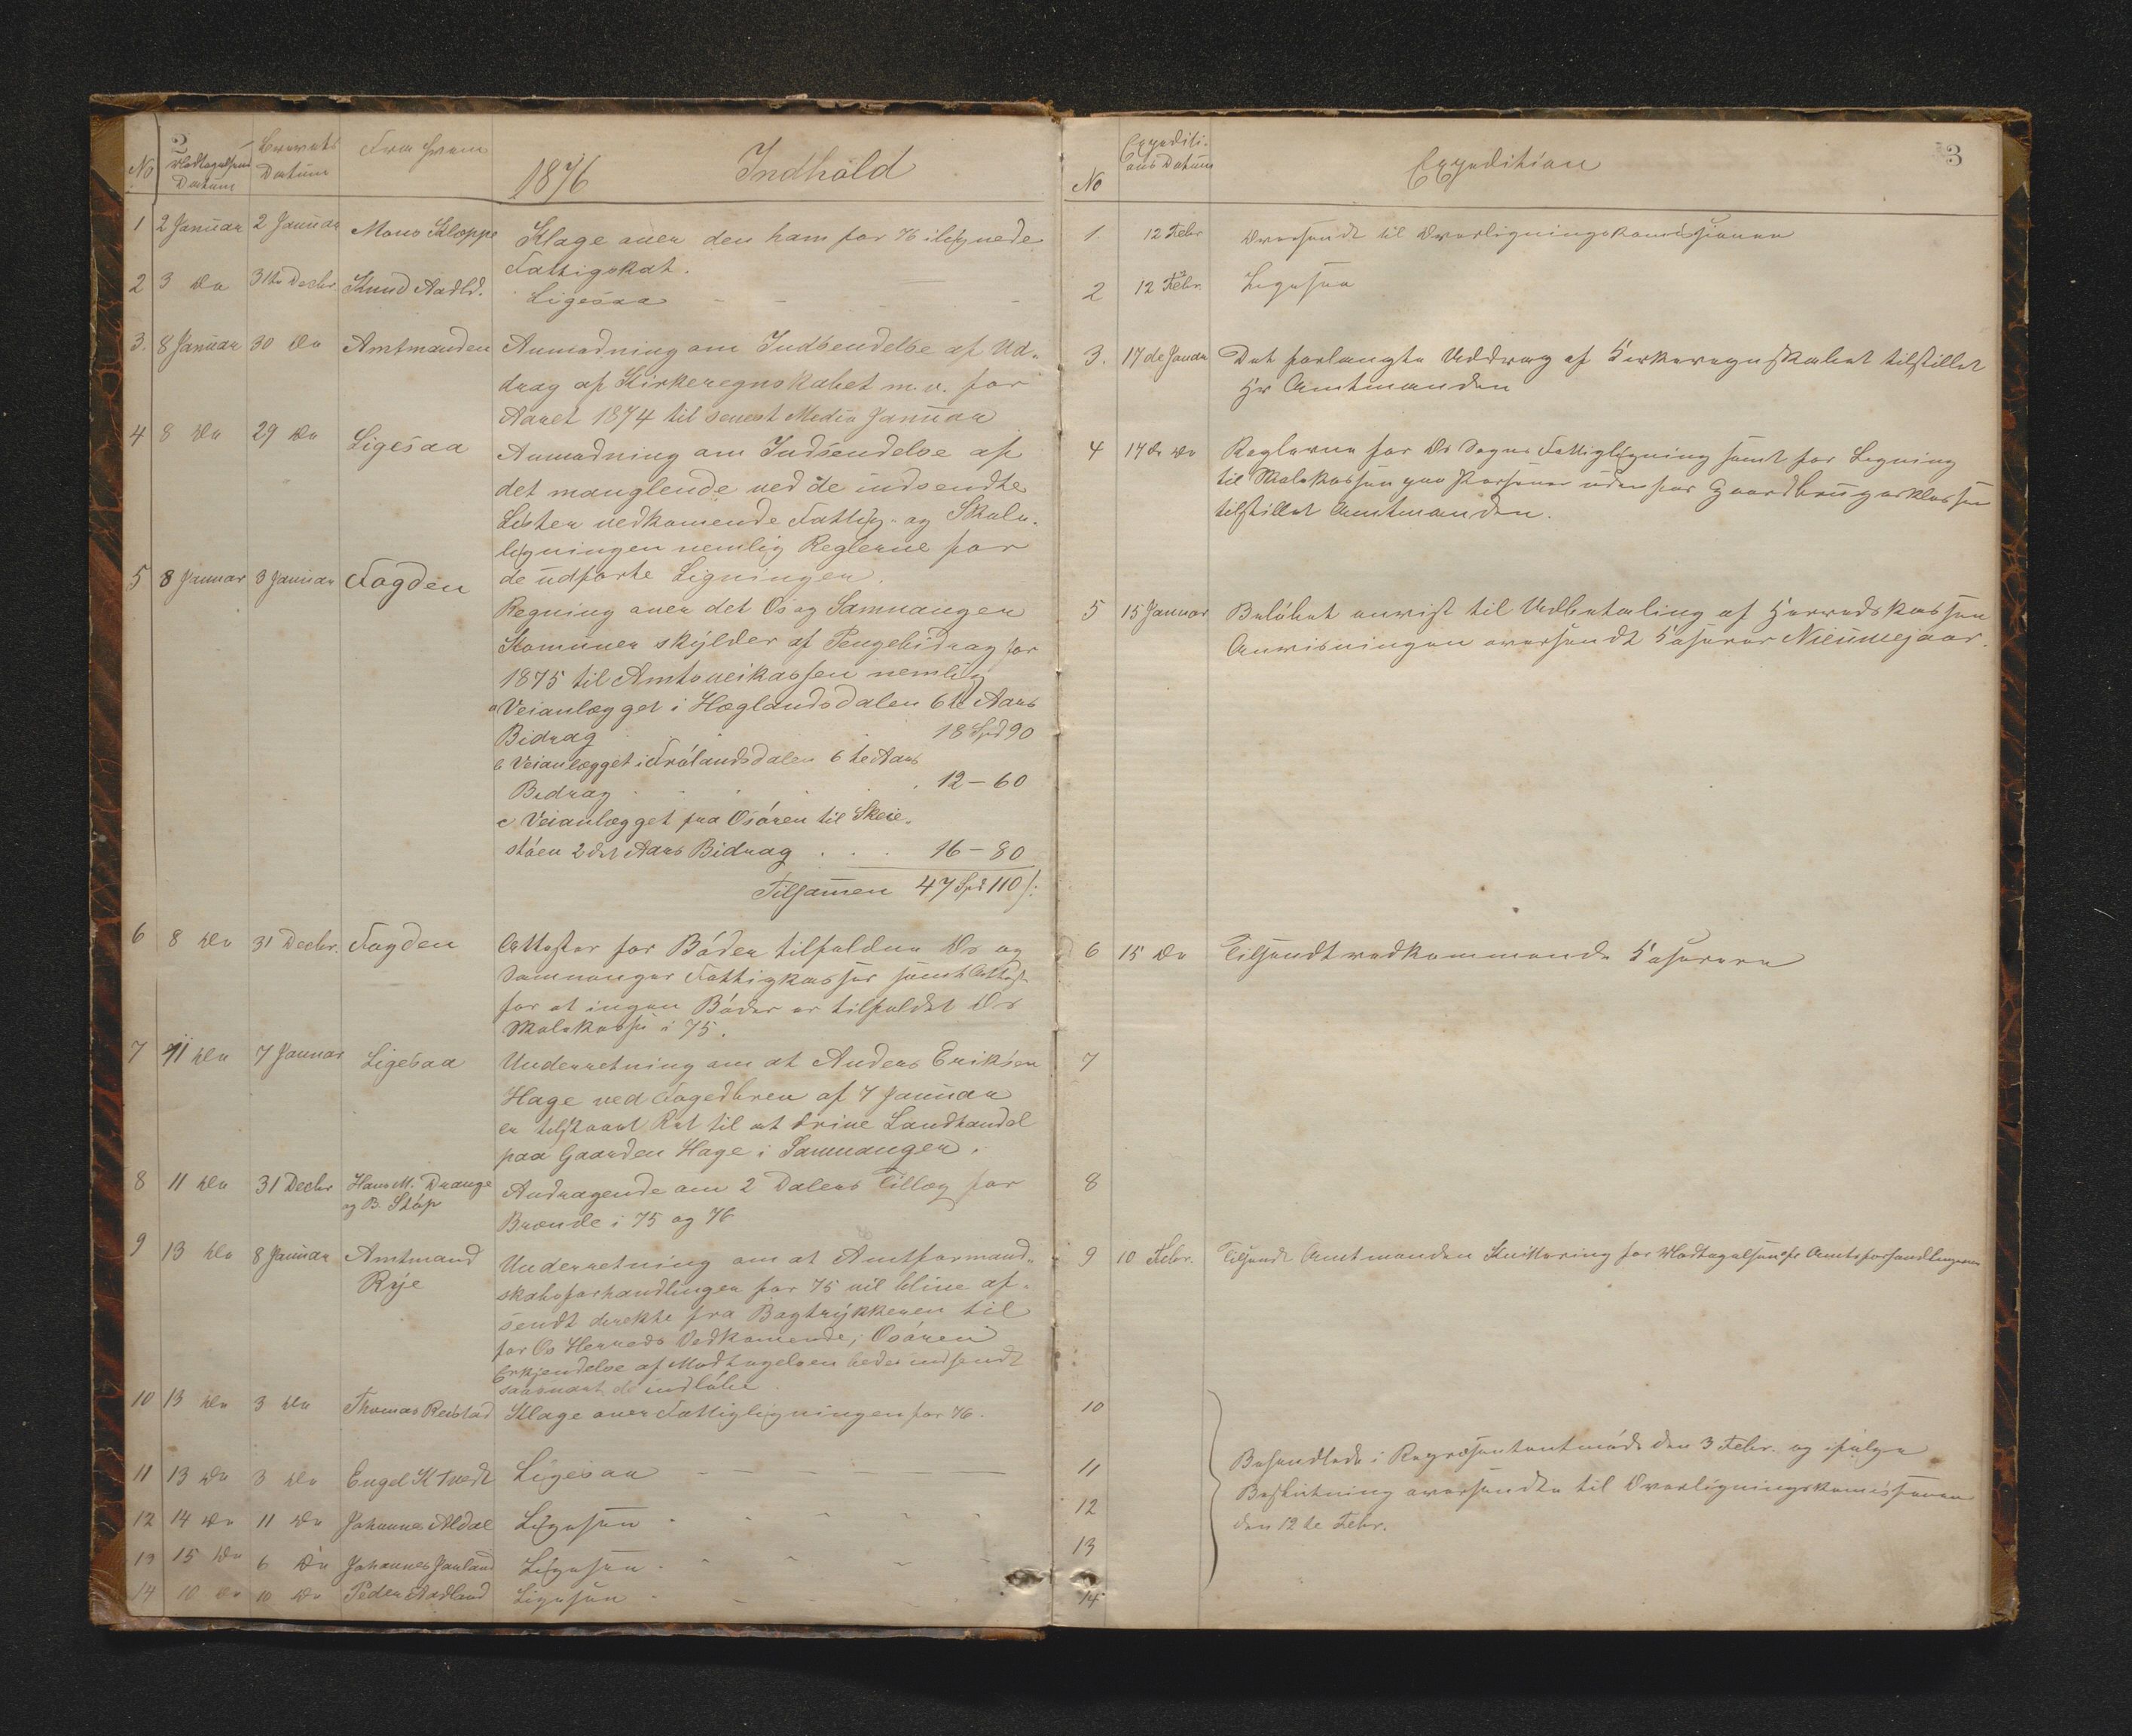 2
No
Modtagelsens
Datum
Brevets
Datum
Fra hvem
1876
Indhold
1 2 Januar 2 Januar Mons Kloppe Klage over den ham for 76 ilignede
Fattigskat.
2 3 Do 31te Decbr. Knud Aadld. Ligesaa - - - -
3. 8 Januar 30 Do Amtmanden Anmodning om Indsendelse af Ud-
drag af Kirkeregnskabet m.v. for
Aaret 1874 til senest Medio Januar
4 8 Do 29 Do Ligesaa Anmodning om Indsendelse af
det manglende ved de indsendte
Lister vedkomende Fattig- og Skole-
ligningen nemlig Reglerne for
de udførte Ligninger.
5 8 Januar 3 Januar Fogden
Regning over det Os og Samnanger
Komuner skylder af Pengebidrag for
1875 til Amtsveikassen nemlig
a Veianlægget i Hæglandsdalen 6te Aars
Bidrag 18 Spd 90
b Veianlægget i Frølandsdalen 6te Aars
Bidrag 12 - 60
c Veianlægget fra Osøren til Skeie-
støen 2det Aars Bidrag . . . 16 - 80
Tilsamen 47 Spd 110 ſ:
6 8 Do 31 Decbr. Fogden Attester for Bøder tilfaldne Os og
Samnanger Fattigkasser samt Attest
for at ingen Bøder er tilfaldet Os
Skolekasse i 75.
7 11 Do 7 Januar Ligesaa Underretning om at Anders Eriksen
Hage ved Fogedbrev af 7 Januar
er tilstaaet Ret til at drive Landhandel
paa Gaarden Hage i Samnanger.
8 11 Do 31 Decbr Hans M. Drange
og B. Støp
Andragende om 2 Dalers Tillæg for
Brænde i 75 og 76
9 13 Do 8 Januar Amtmand
Rye
Underretning om at Amtformand-
skabsforhandlinger for 75 vil blive af-
sendt direkte fra Bogtrykkeren til
for Os Herreds Vedkomende, Osøren
Erkjendelse af Modtagelsen bedes indsendt
saasnart de indløbe
10 13 Do 3 Do Thomas Røistad Klage over Fattigligningen for 76.
11 13 Do 3 Do Engel K Tvedt Ligesaa - - - -
12 14 Do 11 Do Johannes Aldal Ligesaa - - - -
13 15 Do 6 Do Johannes Janland Ligesaa - - - -
14 10 Do 10 Do Peder Aadland Ligesaa - - - -
3
No
Expediti-
ons Datum
Expedition
1. 12 Febr Oversendt til Overligningskomissionen
2 12 Febr. Ligesaa
3. 17de Januar Det forlangte Uddrag af Kirkeregnskabet tilstillet
Hr Amtmanden
4 17de Do Reglerne for Os Sogns Fattigligning samt for Ligning
til Skolekassen paa Personer udenfor Gaardbrugerklassen
tilstillet Amtmanden.
5 15 Januar Beløbet anvist til Udbetaling af Herredskassen
Anvisningen oversendt Kaserer Nieuwejaar.
6 15 Do Tilsendt vedkommende Kaserere
7
8
9 10 Febr. Tilsendt Amtmanden Kvittering for Modtagelsen af Amtsforhandlingerne
10
11
12
13
14
Behandlede i Repræsentantmøde den 3 Febr. og ifølge
Beslutning oversendte til Overligningskomissionen
den 12te Febr.